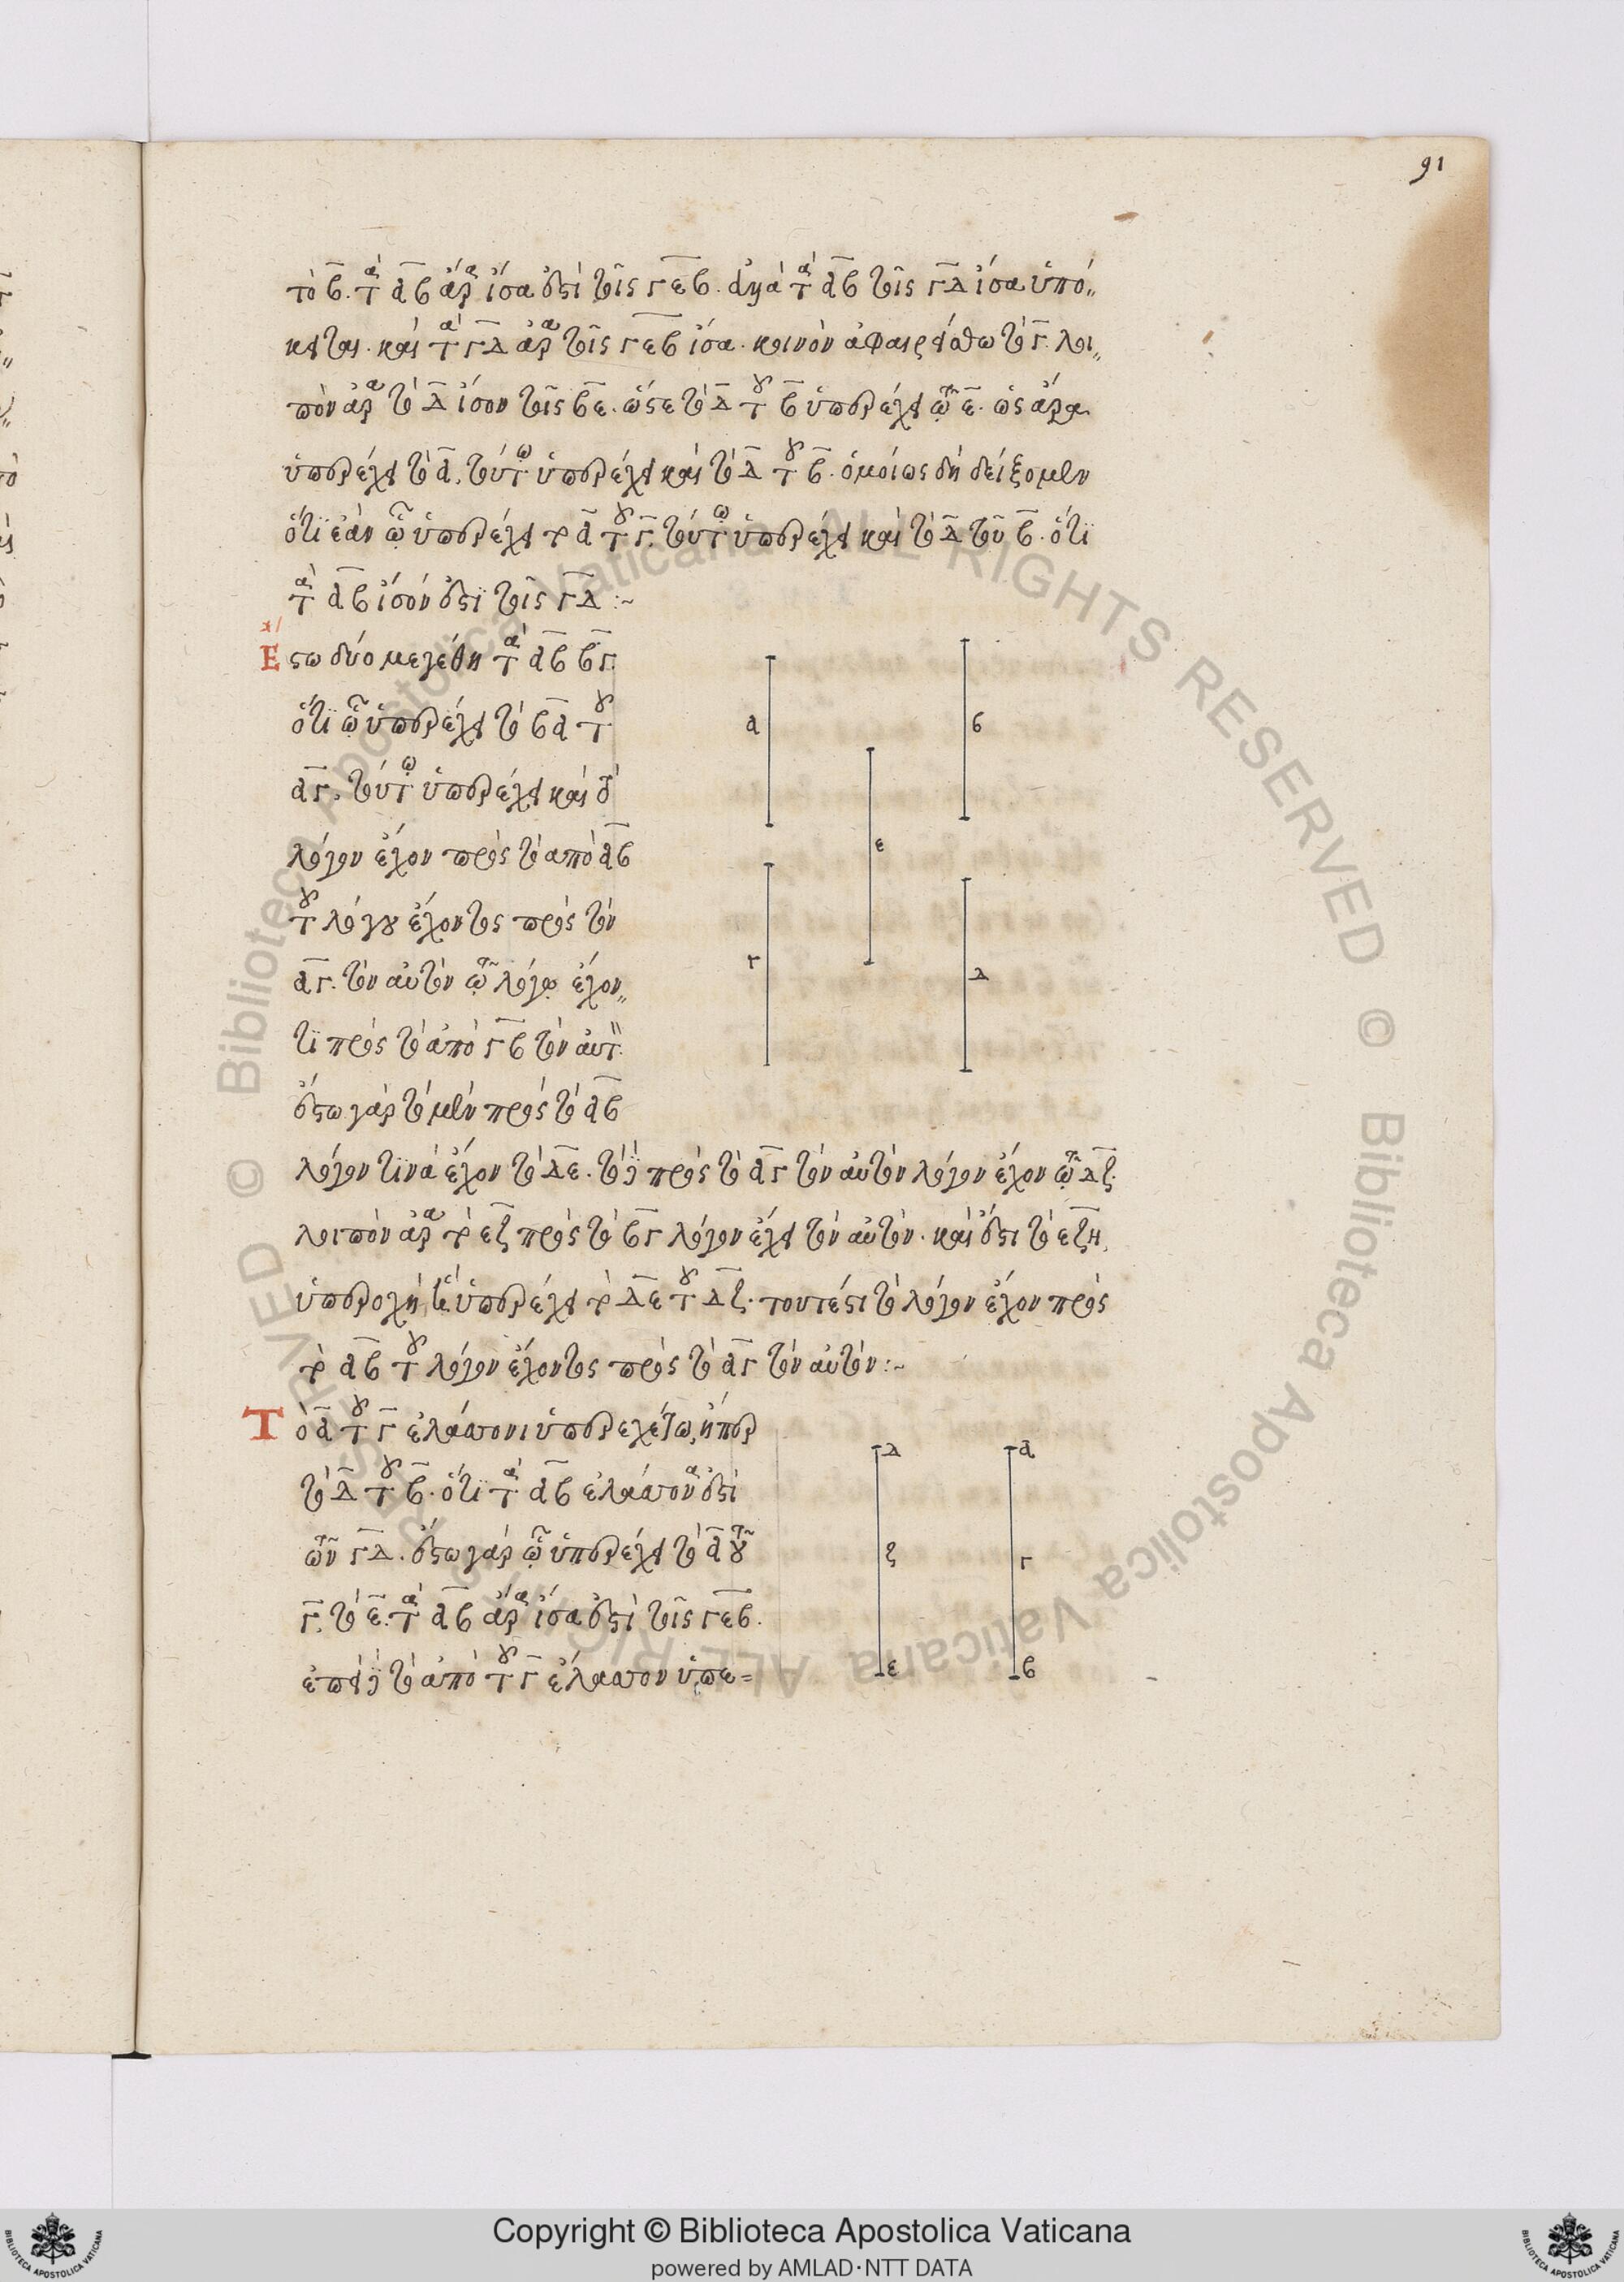 91
τὸ β̅. τὰ α̅β̅ ἄρα ἴσα ἐστὶ τοῖς γ̅ε̅β̅. ἀλλὰ τὰ α̅β̅ τοῖς γ̅δ̅ ἴσα ὑπό〃
κειται. καὶ τὰ γ̅δ̅ ἄρα τοῖς γ̅ε̅β̅ ἴσα. κοινὸν ἀφαιρείσθω τὸ γ̅. λοι〃
πὸν ἄρα τὸ δ̅ ἴσον τοῖς β̅ε̅. ὥστε τὸ δ̅ τοῦ β̅ ὑπερέχει τῷ ε̅. ὡς ἄρα
ὑπερέχει τὸ α̅, τούτω ὑπερέχει καὶ τὸ δ̅ τοῦ β̅. ὁμοίως δὴ δείξομεν
ὅτι ἐὰν ᾧ ὑπερέχει τὸ α̅ τοῦ γ̅, τούτω ὑπερέχει καὶ τὸ δ̅ τοῦ β̅. ὅτι
τὰ α̅β̅ ἴσόν ἐστι τοῖς γ̅δ̅ :~
Ἔστω δύο μεγέθη τὰ α̅β̅ β̅γ̅.
ὅτι ᾧ ὑπερέχει τὸ β̅α̅ τοῦ
α̅γ̅, τούτω ὑπερέχει καὶ τὸ
λόγον ἔχον πρὸς τὸ ἀπὸ α̅β̅
τοῦ λόγου ἔχοντος πρὸς τὸν
α̅γ̅. τὸν αὐτὸν τῷ λόγῳ ἔχον〃
τι πρὸς τὸ ἀπὸ γ̅β̅ τὸν αὐτὸν.
ἔστω γὰρ τὸ μὲν πρὸς τὸ α̅β̅
λόγον τινὰ ἔχον τὸ δ̅ε̅. τὸ δὲ πρὸς τὸ α̅γ̅ τὸν αὐτὸν λόγον ἔχον τῷ δ̅ζ̅.
λοιπὸν ἄρα τὸ ε̅ζ̅ πρὸς τὸ β̅γ̅ λόγον ἔχει τὸν αὐτόν. καὶ ἔστι τὸ εζη,
ὑπεροχὴ ὑπερέχει τὸ δ̅ε̅ τοῦ δ̅ζ̅. τουτέστι τὸ λόγον ἔχον πρὸς
τὸ α̅β̅ τοῦ λόγον ἔχοντος πρὸς τὸ α̅γ̅ τὸν αὐτόν :~
Τὸ α̅ τοῦ γ̅ ἐλάττονι ὑπερεχέτω, ἤπερ
τὸ δ̅ τοῦ β̅. ὅτι τὰ α̅β̅ ἐλάττονά ἐστι
τῶν γ̅δ̅. ἔστω γὰρ ᾧ ὑπερέχει τὸ α̅ τοῦ
γ̅, τὸ ε̅. τὰ α̅β̅ ἄρα ἴσα ἐστὶ τοῖς γ̅ε̅β̅.
ἐπεὶ δὲ τὸ ἀπὸ τοῦ γ̅ ἔλαττον ὑπε=
α
β
ε
γ
δ
δ
α
ζ
γ
ε
β
Copyright © Biblioteca Apostolica Vaticana
powered by AMLAD·NTT DATA